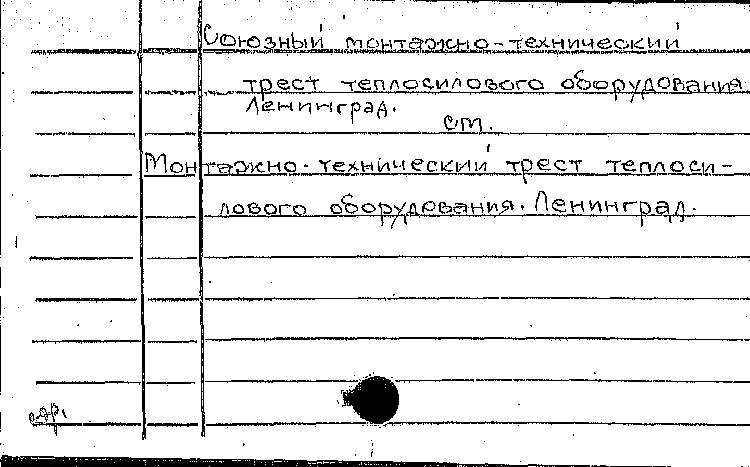 Союзный монтажно-технический
трест теплосилового оборудования
Ленинград.
см.
Монтажно-технический трест теплоси-
лового оборудования. Ленинград.